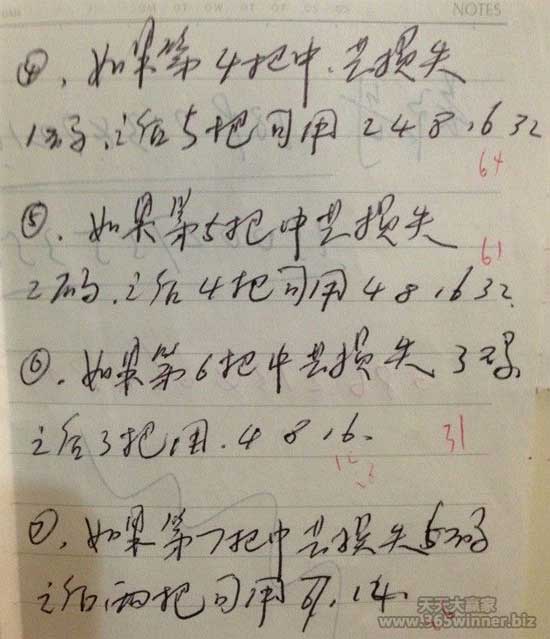 NOTES
④.如果第4把中.共损失
1码.之后5把可用 2 4 8 16 32
64
⑤.如果第5把中共损失
61
2码.之后4把可用 4 8 16 32
⑥.如果第6把中共损失 3码
之后3把用.4 8 16.
31
⑦.如果第7把中共损失5码
之后两把可用 7.14.
天天大赢家
www.365winner.biz